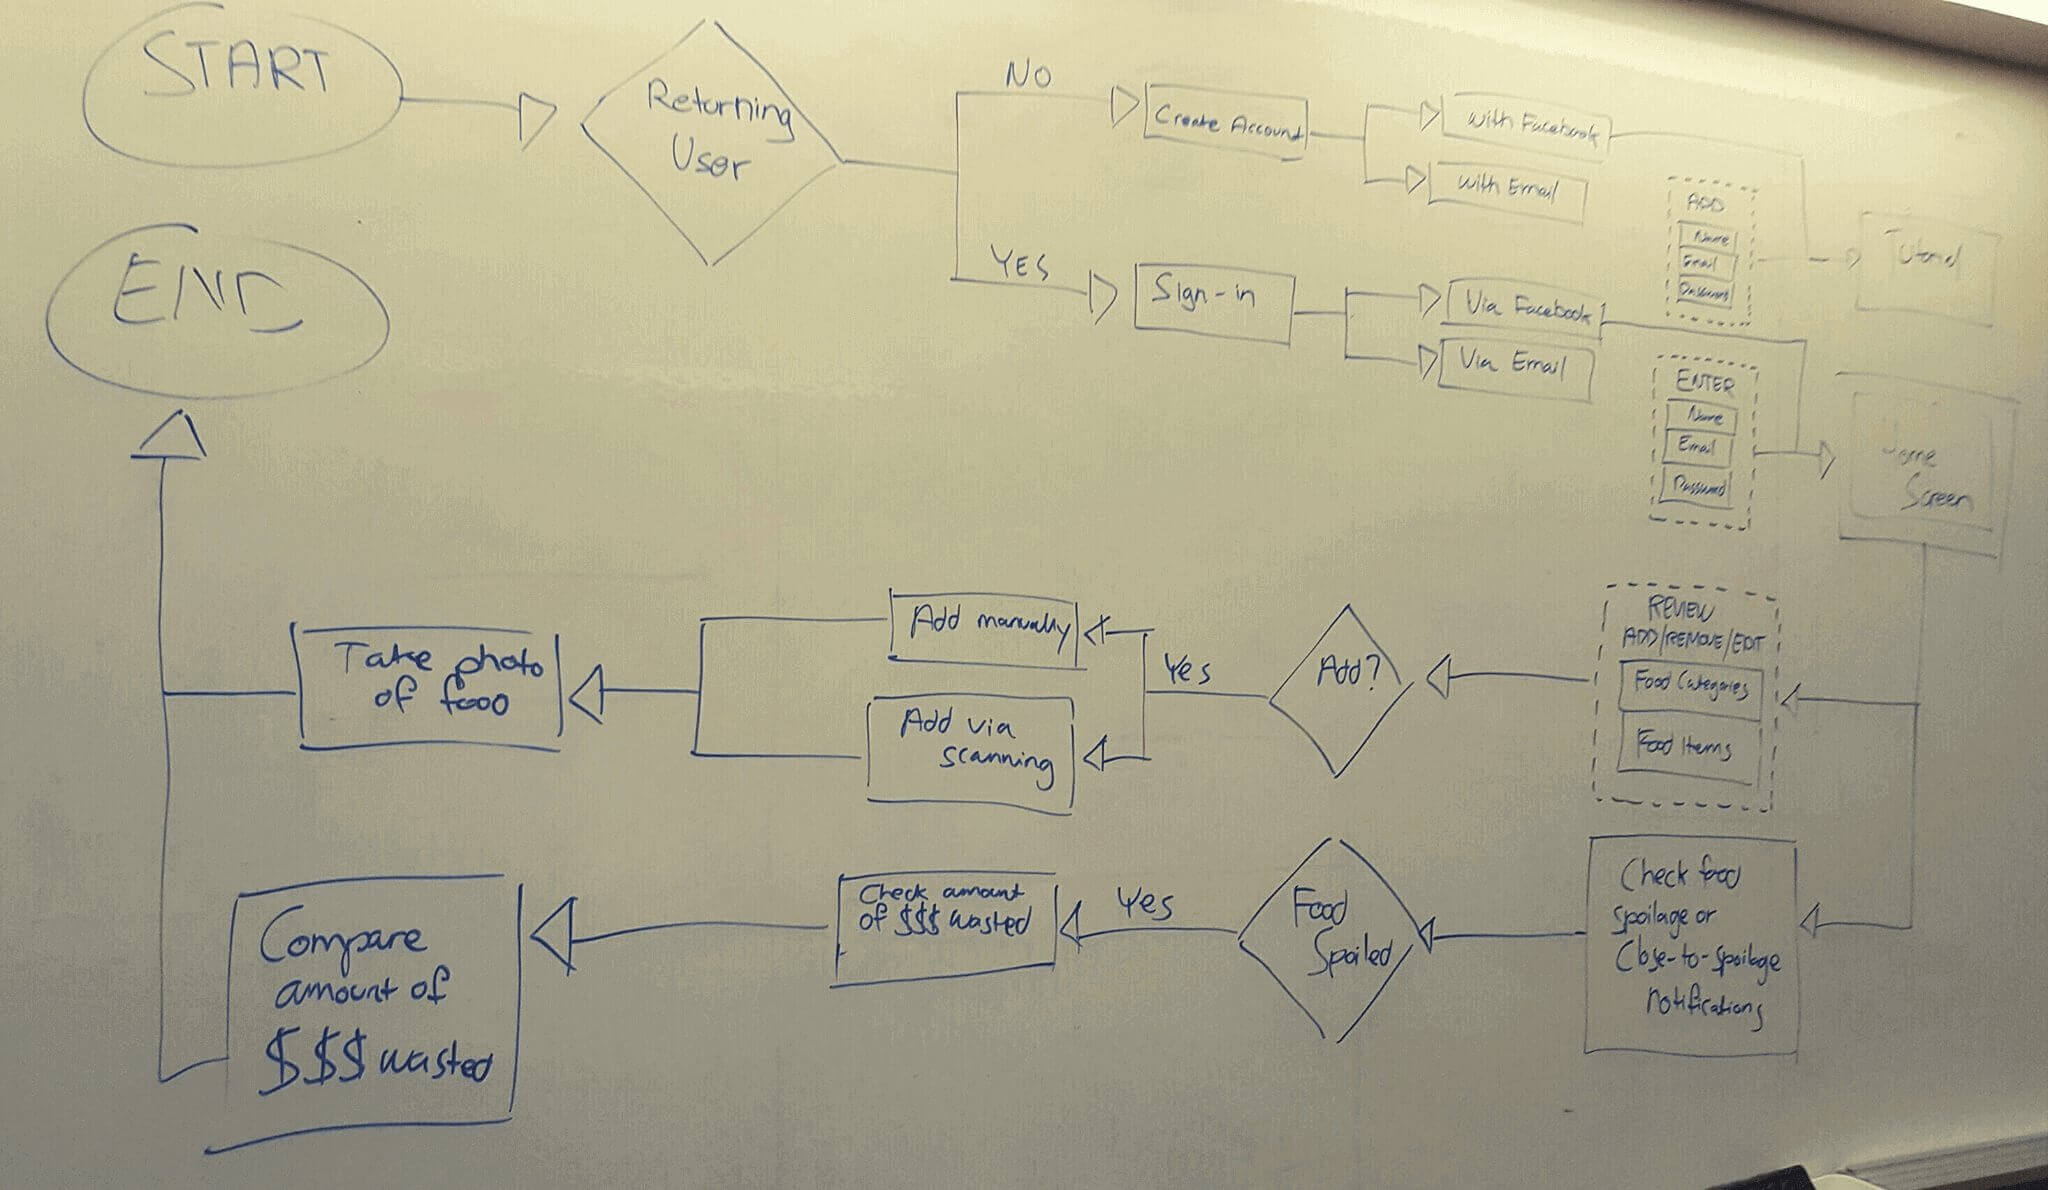 START
Returning
User
NO
Create Account
with Facebook
with Email
ADD
Name
Email
Password
Tutorial
YES
Sign-in
Via Facebook
Via Email
ENTER
Name
Email
Password
Home
Screen
END
REVIEW
ADD/REMOVE/EDIT
Food Categories
Food Items
Add?
Yes
Add manually
Add via
scanning
Take photo
of food
Check food
spoilage or
Close-to-spoilage
notifications
Food
Spoiled
Yes
Check amount
of $$$ wasted
Compare
amount of
$$$ wasted